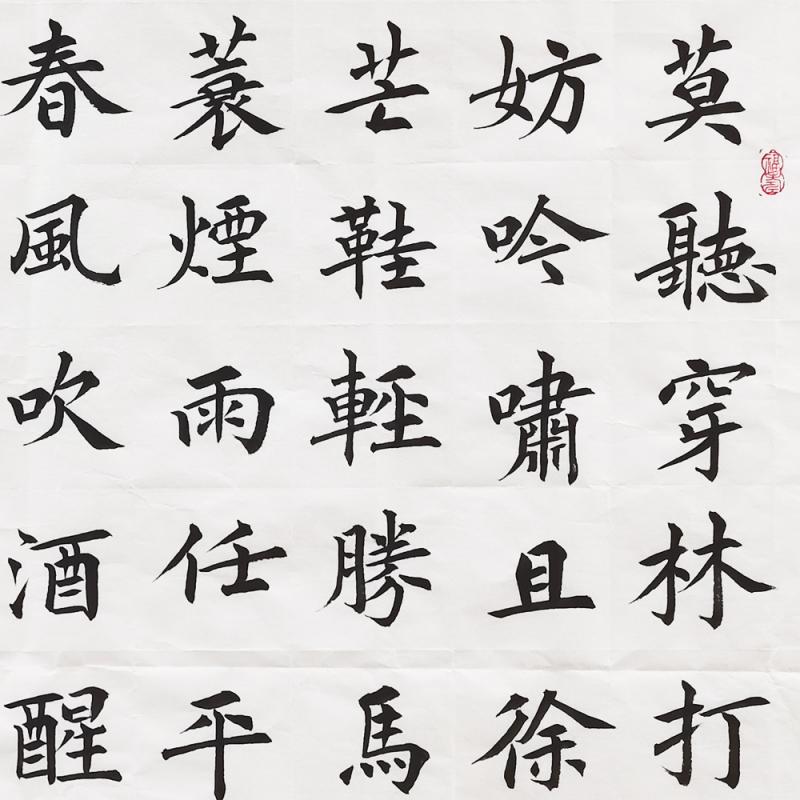 莫聽穿林打
妨吟嘯且徐
芒鞋輕勝馬
蓑煙雨任平
春風吹酒醒